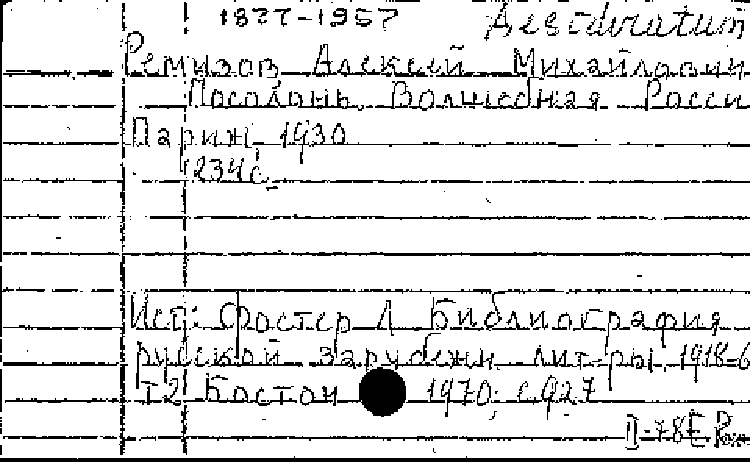 1877-1957 Desideratum
Ремизов Алексей Михайлович
Посолонь. Волшебная Росси
Париж, 1930
234с.
Ист: Фостер Л Библиография
русской зарубежн. лит-ры. 1918-6
Т2 Бостон 1970; с.927
П-78Е